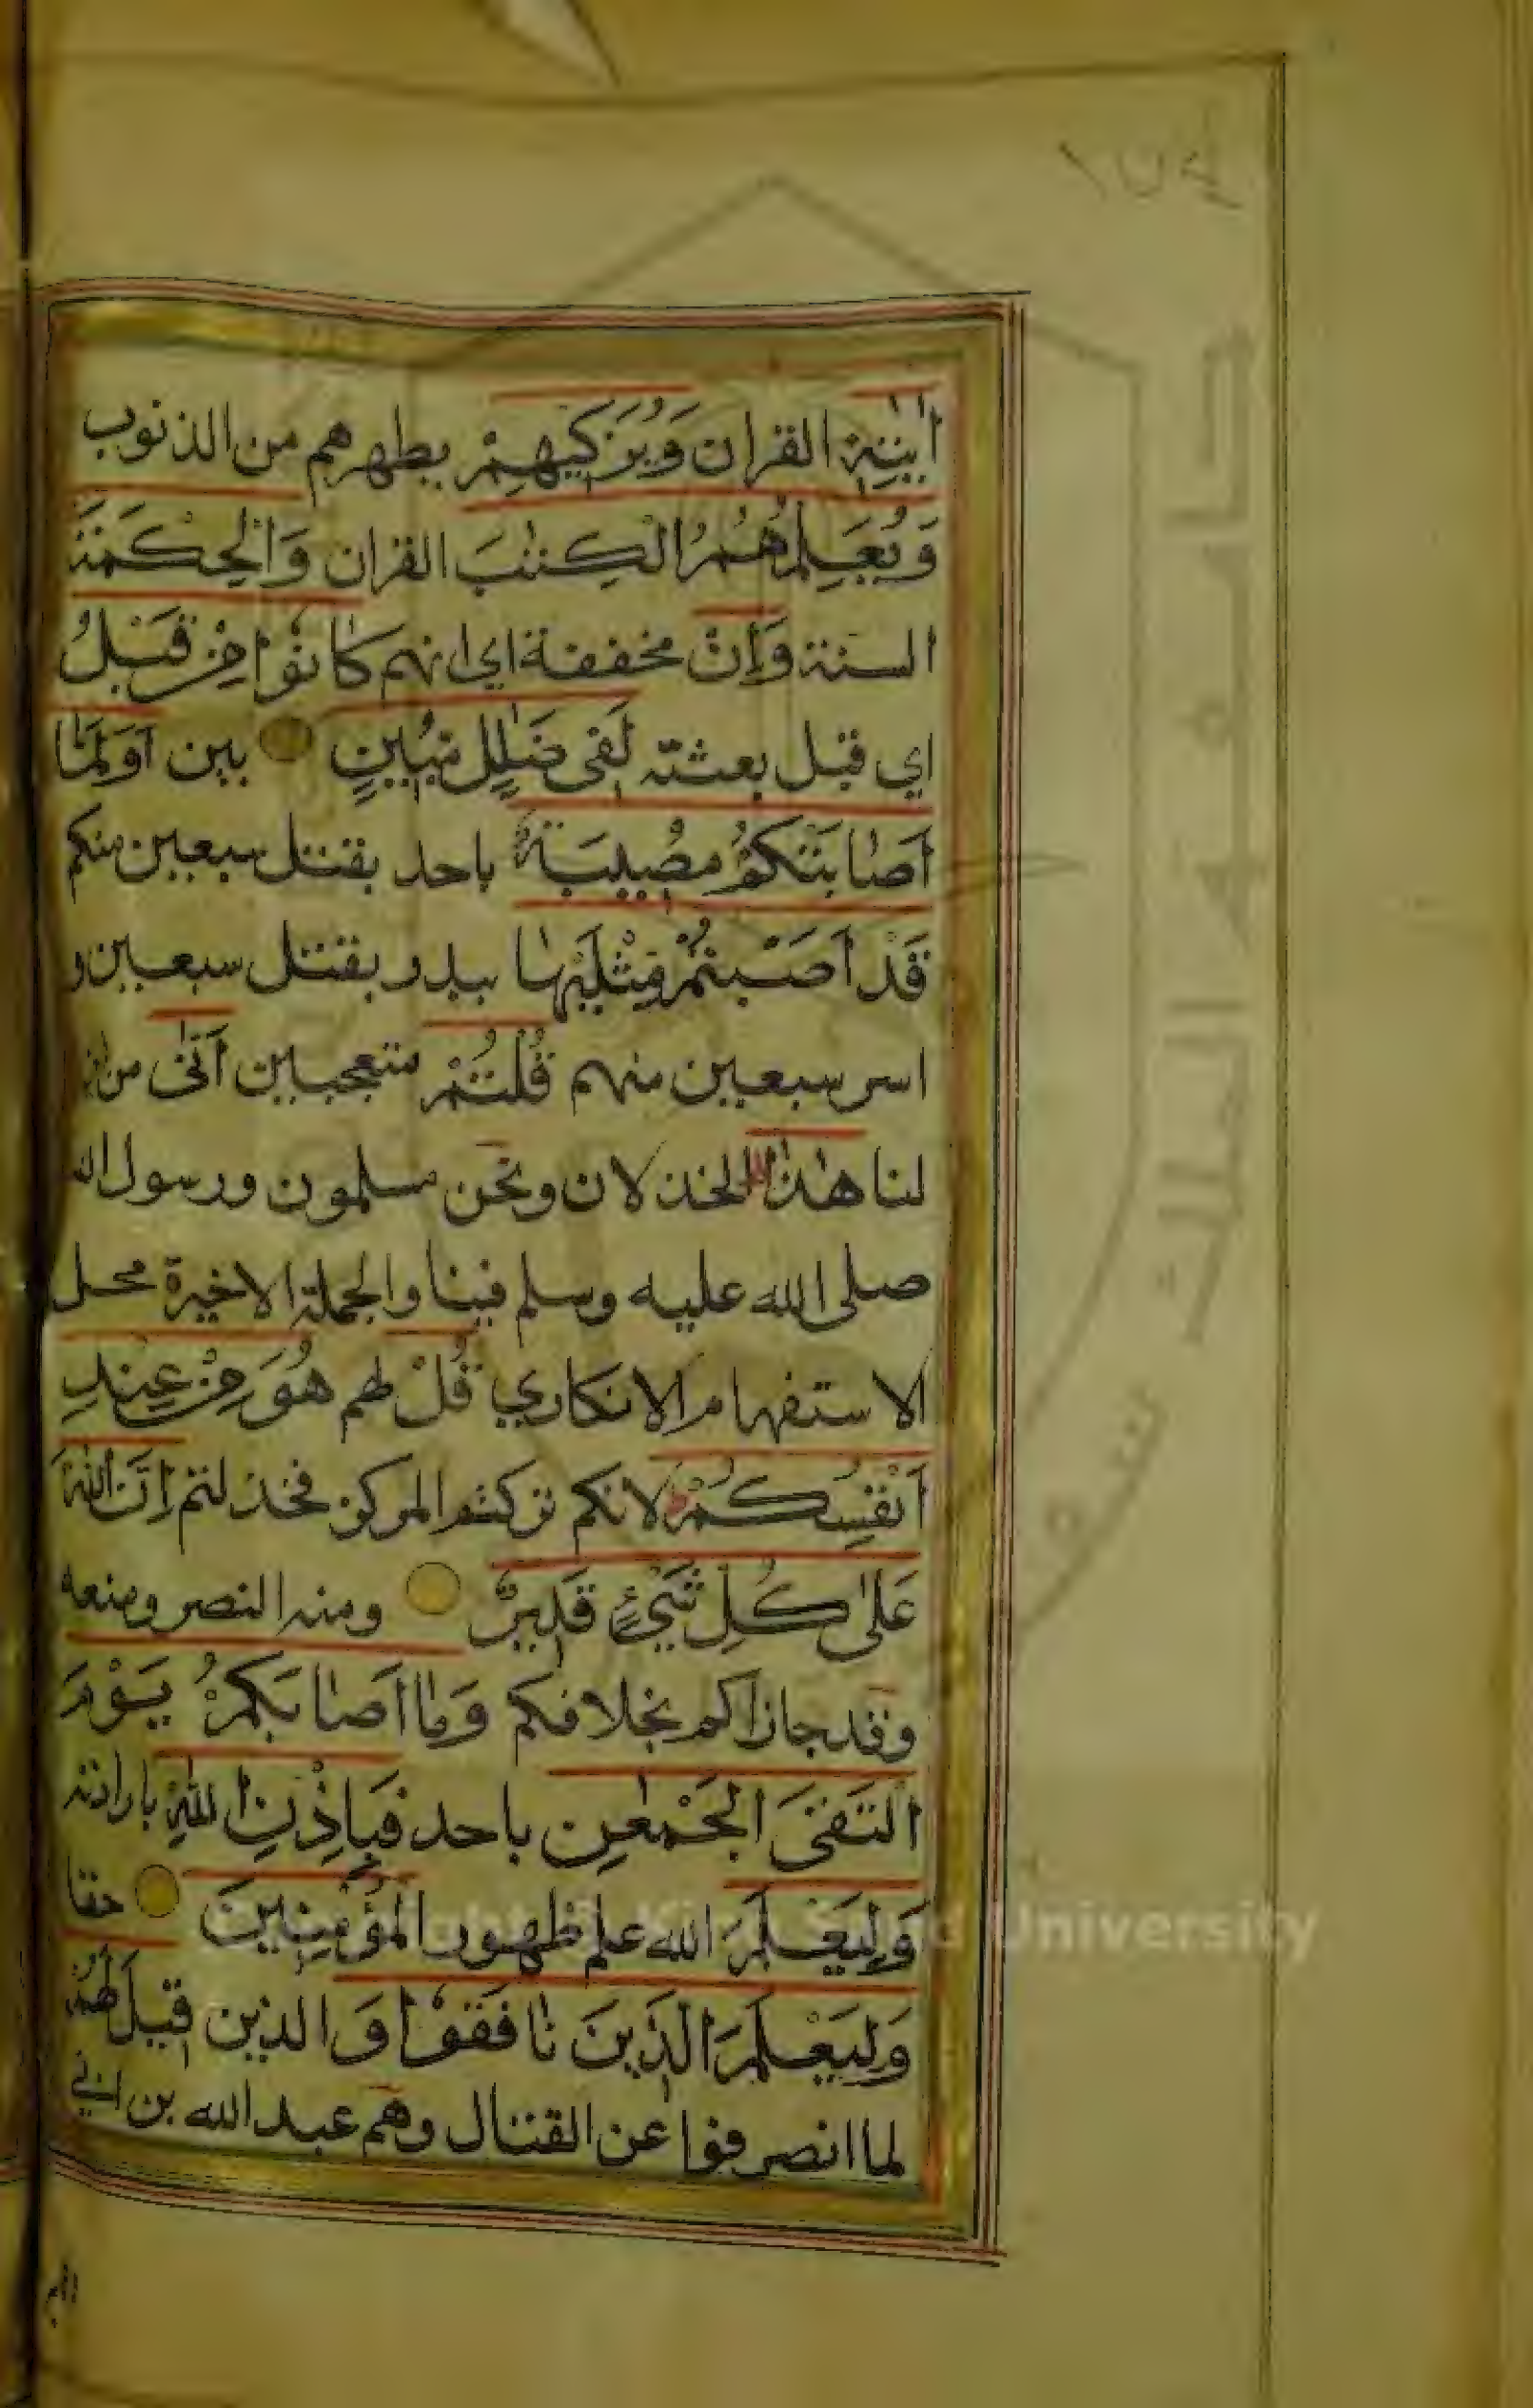 اٰيٰتِهٖ القران وَيُزَكِّيهِمْ يطهرهم من الذنوب
وَيُعَلِّمُهُمُ الْكِتٰبَ القران وَالْحِكْمَةَ
السنة وَاِنْ مخففة اي انهم كَانُوْا مِنْ قَبْلُ
اي قبل بعثته لَفِى ضَلٰلٍ مُبِينٍ بين اَوَلَمَّا
اَصَابَتْكُمْ مُصِيبَةٌ باحد بقتل سبعين منكم
قَدْ اَصَبْتُمْ مِثْلَيْهَا ببدر بقتل سبعين و
اسر سبعين منهم قُلْتُمْ متعجبين اَنّٰى من اين
لنا هٰذَا الخذلان ونحن مسلمون ورسول الله
صلى الله عليه وسلم فينا والجملة الاخيرة محل
الاستفهام الانكاري قُلْ لهم هُوَ مِنْ عِنْدِ
اَنْفُسِكُمْ لانكم تركتم المركز فخذلتم اِنَّ اللهَ
عَلٰى كُلِّ شَيْءٍ قَدِيرٌ ومنه النصر ومنعه
وقد جازاكم بخلافكم وَمَا اَصَابَكُمْ يَوْمَ
الْتَقَى الْجَمْعٰنِ باحد فَبِاِذْنِ اللهِ بارادته
وَلِيَعْلَمَ الله علم ظهور الْمُؤْمِنِينَ حقا
وَلِيَعْلَمَ الَّذِينَ نَافَقُوْا وَ الذين قِيلَ لَهُمْ
لما انصرفوا عن القتال وهم عبد الله بن ابي
جامعة الملك سعود
University